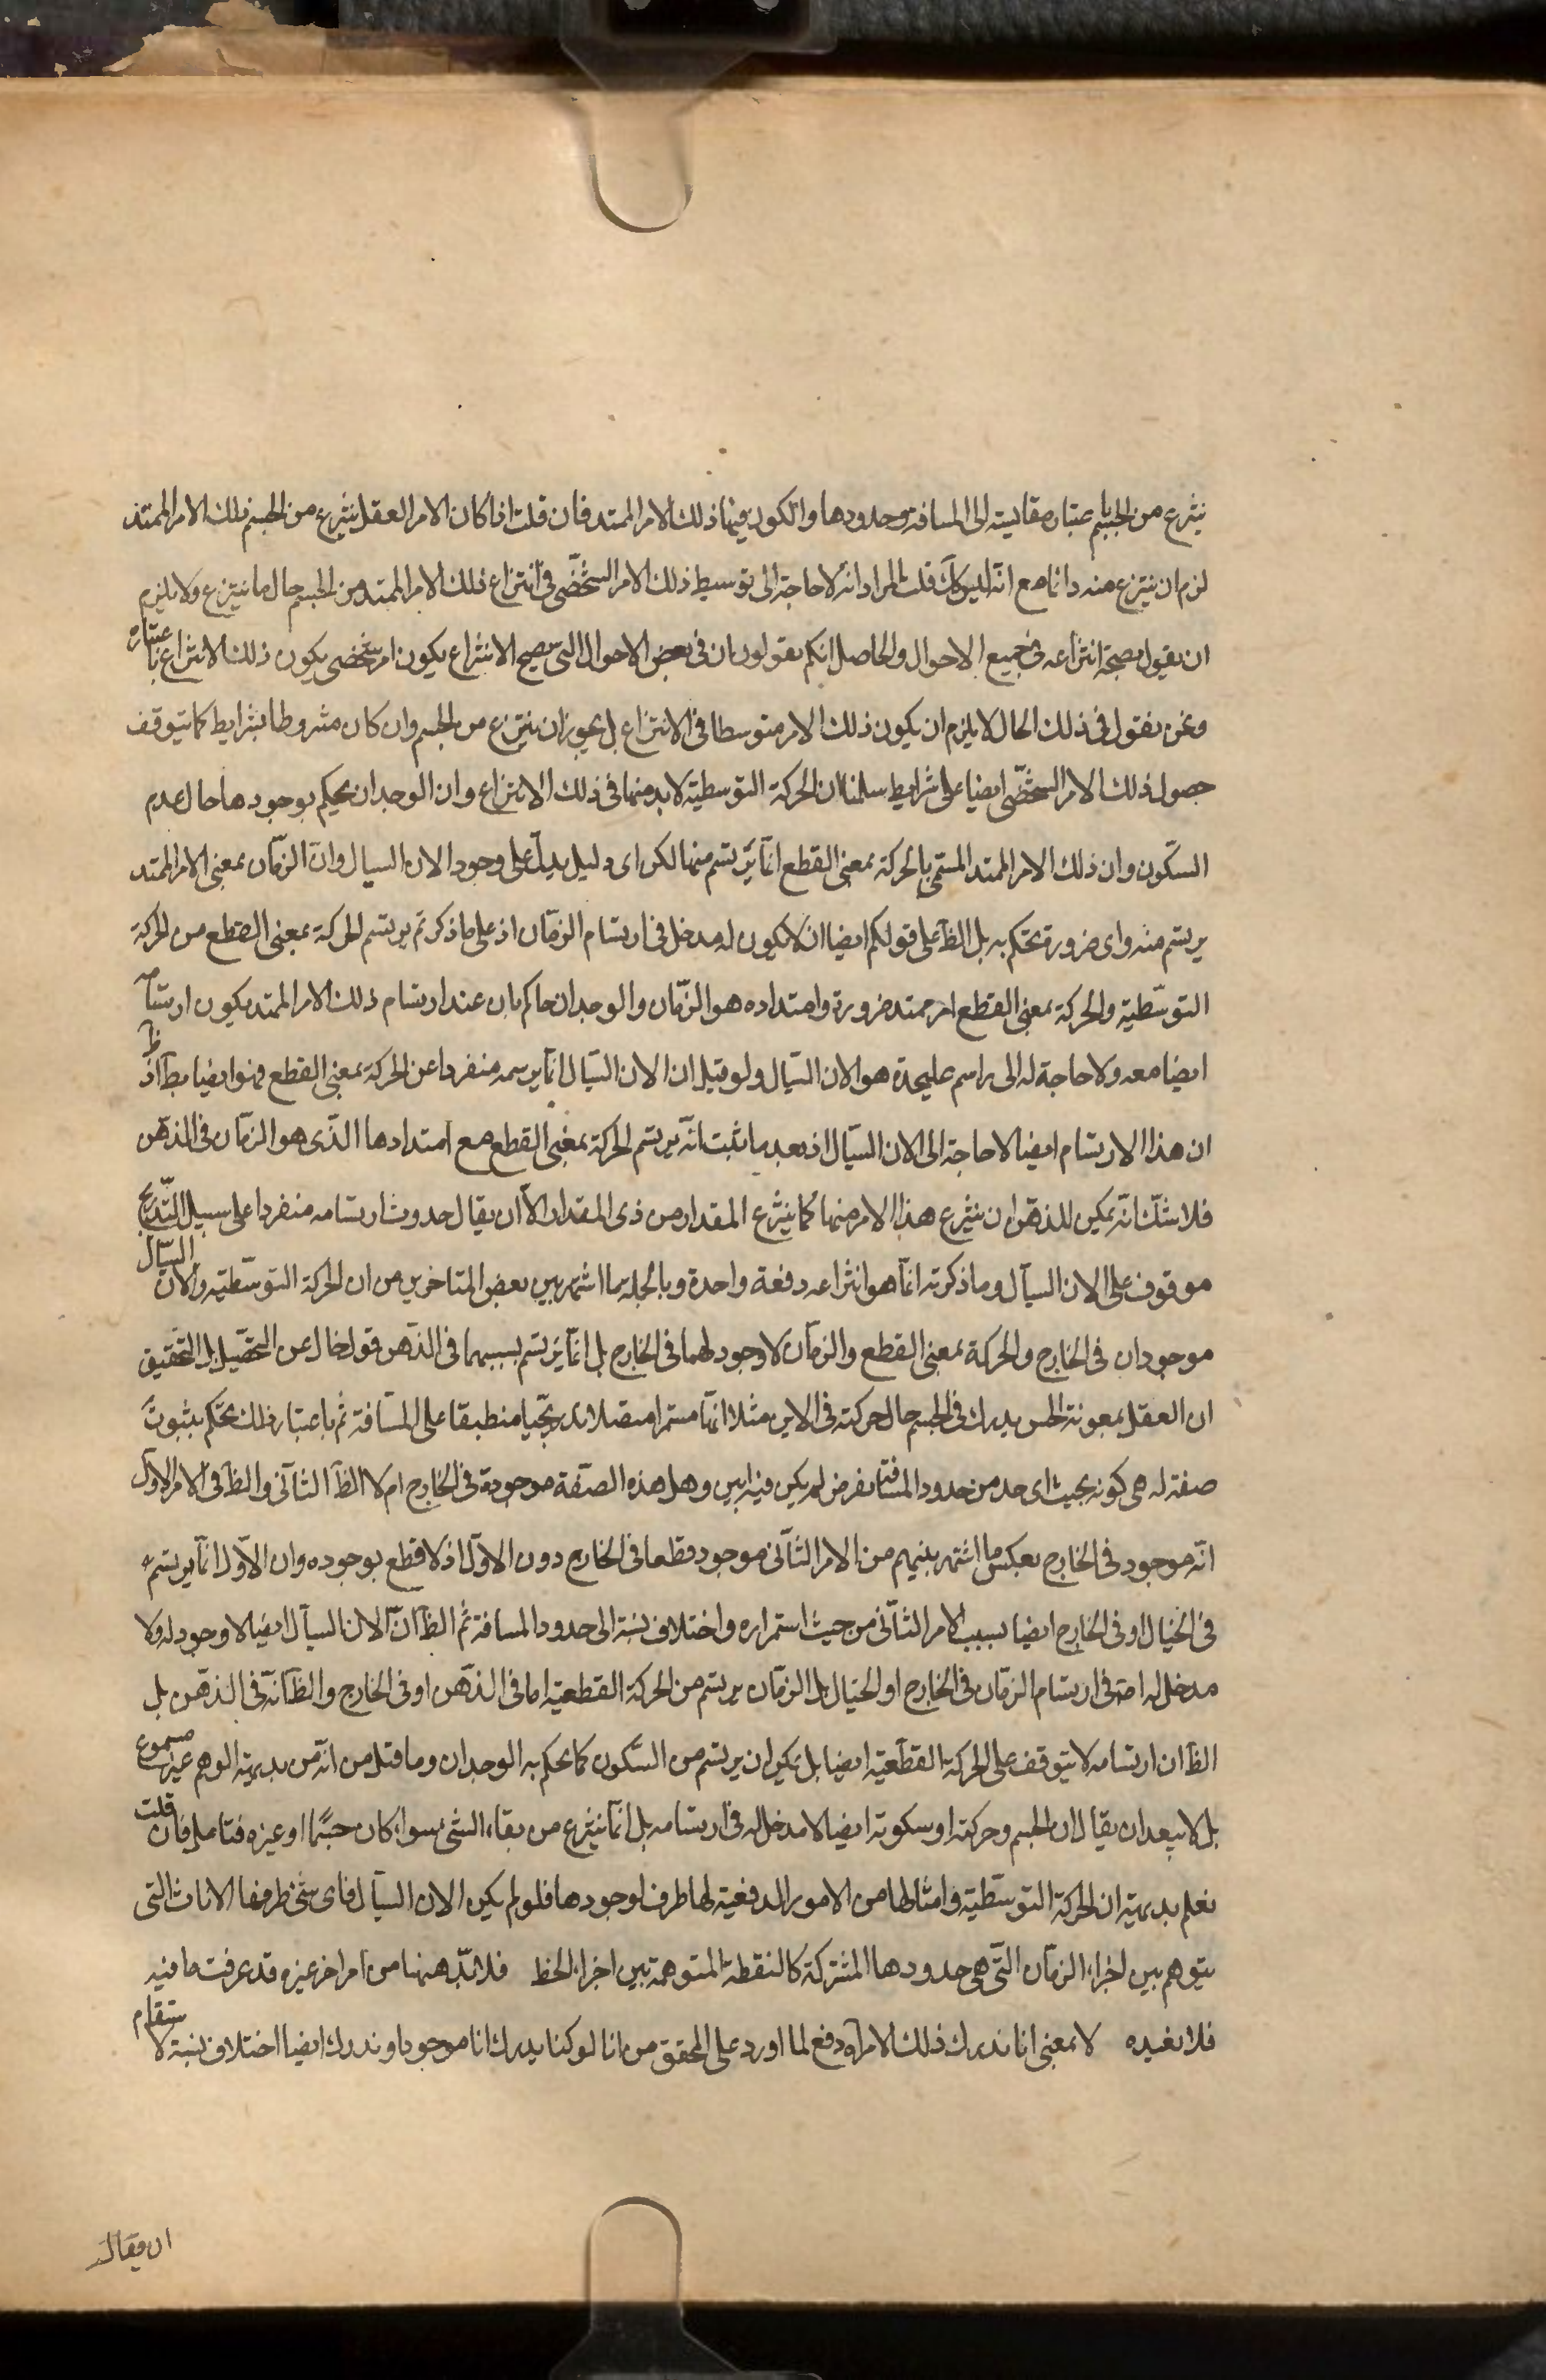 ينتزع من الجسم باعتبار مقايسته الى المسافة وحدودها والكون فيها ذلك الامر الممتد فان قلت اذا كان الامر العقل ينتزع من الجسم ذلك الامر الممتد
لزم ان ينتزع منه دائما مع انه ليس كك قلت المراد انه لا حاجة الى توسيط ذلك الامر الشخصى فى انتزاع ذلك الامر الممتد من الجسم حال ما ينتزع ولا يلزم
ان يقول بصحة انتزاعه فى جميع الاحوال والحاصل انكم تقولون ان فى بعض الاحوال التى يصح الانتزاع يكون امر شخصى يكون ذلك الانتزاع باعتباره
ونحن نقول فى ذلك الحال لا يلزم ان يكون ذلك الامر متوسطا فى الانتزاع بل يجوز ان ينتزع من الجسم وان كان مشروطا بشرايط كما يتوقف
حصول ذلك الامر الشخصى ايضا على شرايط سلمنا ان الحركة التوسطية لا بد منها فى ذلك الانتزاع وان الوجدان يحكم بوجودها حال عدم
السكون وان ذلك الامر الممتد المسمى بالحركة بمعنى القطع انما يرتسم منها لكن اى دليل يدل على وجود الان السيال وان الزمان بمعنى الامر الممتد
يرتسم منه واى ضرورة تحكم به بل الظ على قولكم ايضا ان لا يكون له مدخل فى ارتسام الزمان اذ على ما ذكرتم يرتسم الحركة بمعنى القطع من الحركة
التوسطية والحركة بمعنى القطع امر ممتد ضرورة وامتداده هو الزمان والوجدان حاكم بان عند ارتسام ذلك الامر الممتد يكون ارتسامه
ايضا معه ولا حاجة له الى راسم عليحدة هو الان السيال ولو قيل ان الان السيال انما يرسمه منفردا عن الحركة بمعنى القطع فهو ايضا بط اذ ظ
ان هذا الارتسام ايضا لا حاجة الى الان السيال اذ بعد ما ثبت انه يرتسم الحركة بمعنى القطع مع امتدادها الذى هو الزمان فى الذهن
فلا شك انه يمكن للذهن ان ينتزع هذا الامر منها كما ينتزع المقدار من ذى المقدار الا ان يقال حدوث ارتسامه منفردا على سبيل التدريج
موقوف على الان السيال وما ذكرته انما هو انتزاعه دفعة واحدة وبالجملة ما اشتهر بين بعض المتاخرين من ان الحركة التوسطية والان السيال
موجودان فى الخارج والحركة بمعنى القطع والزمان لا وجود لهما فى الخارج بل انما يرتسم بسببهما فى الذهن قول خال عن التحصيل بل التحقيق
ان العقل بمعونة الحس يدرك فى الجسم حال حركته فى الاين مثلا اينا مستمرا متصلا تدريجيا منطبقا على المسافة ثم باعتبار ذلك يحكم بثبوت
صفة له هى كونه بحيث اى حد من حدود المسافة يفرض لم يكن فيه اين وهل هذه الصفة موجودة فى الخارج ام لا الظ الثانى والظ فى الامر الاول
انه موجود فى الخارج بعكس ما اشتهر بينهم من الامر الثانى موجود قطعا فى الخارج دون الاول اذ لا قطع بوجوده وان الاول انما يرتسم
فى الخيال او فى الخارج ايضا بسبب الامر الثانى من حيث استمراره واختلاف نسبته الى حدود المسافة ثم الظ ان الان السيال ايضا لا وجود له ولا
مدخل له اصلا فى ارتسام الزمان فى الخارج او الخيال بل الزمان يرتسم من الحركة القطعية اما فى الذهن او فى الخارج والظ انه فى الذهن بل
الظ ان ارتسامه لا يتوقف على الحركة القطعية ايضا بل يمكن ان يرتسم من السكون كما يحكم به الوجدان وما قيل من انه من بديهة الوهم غير مسموع
بل لا يبعد ان يقال ان الجسم وحركته او سكونه ايضا لا مدخل له فى ارتسامه بل انما ينتزع من بقاء الشى سواء كان جسما او غيره فتامل فان قلت
نعلم بديهة ان الحركة التوسطية وامثالها من الامور الدفعية لها ظرف لوجودها فلو لم يكن الان السيال فاى شى ظرفها الانات التى
يتوهم بين اجزاء الزمان التى هى حدودها المشتركة كالنقطة المتوهمة بين اجزاء الخط فلا بد ههنا من امر اخر غيره قد عرفت ما فيه
فلا نعيده لا بمعنى انا ندرك ذلك الامر اه دفع لما اورد على المحقق من انا لو كنا ندرك انا موجودا وندرك ايضا اختلاف نسبته لاستقام
ان يقال